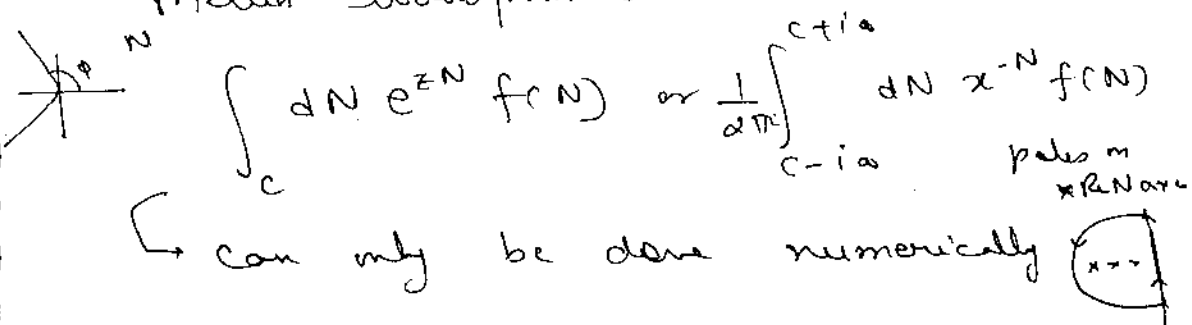 N
φ
∫_C dN e^{zN} f(N) or 1/2πi ∫_{c-i∞}^{c+i∞} dN x^{-N} f(N)
poles on
Re N axis
↳ can only be done numerically